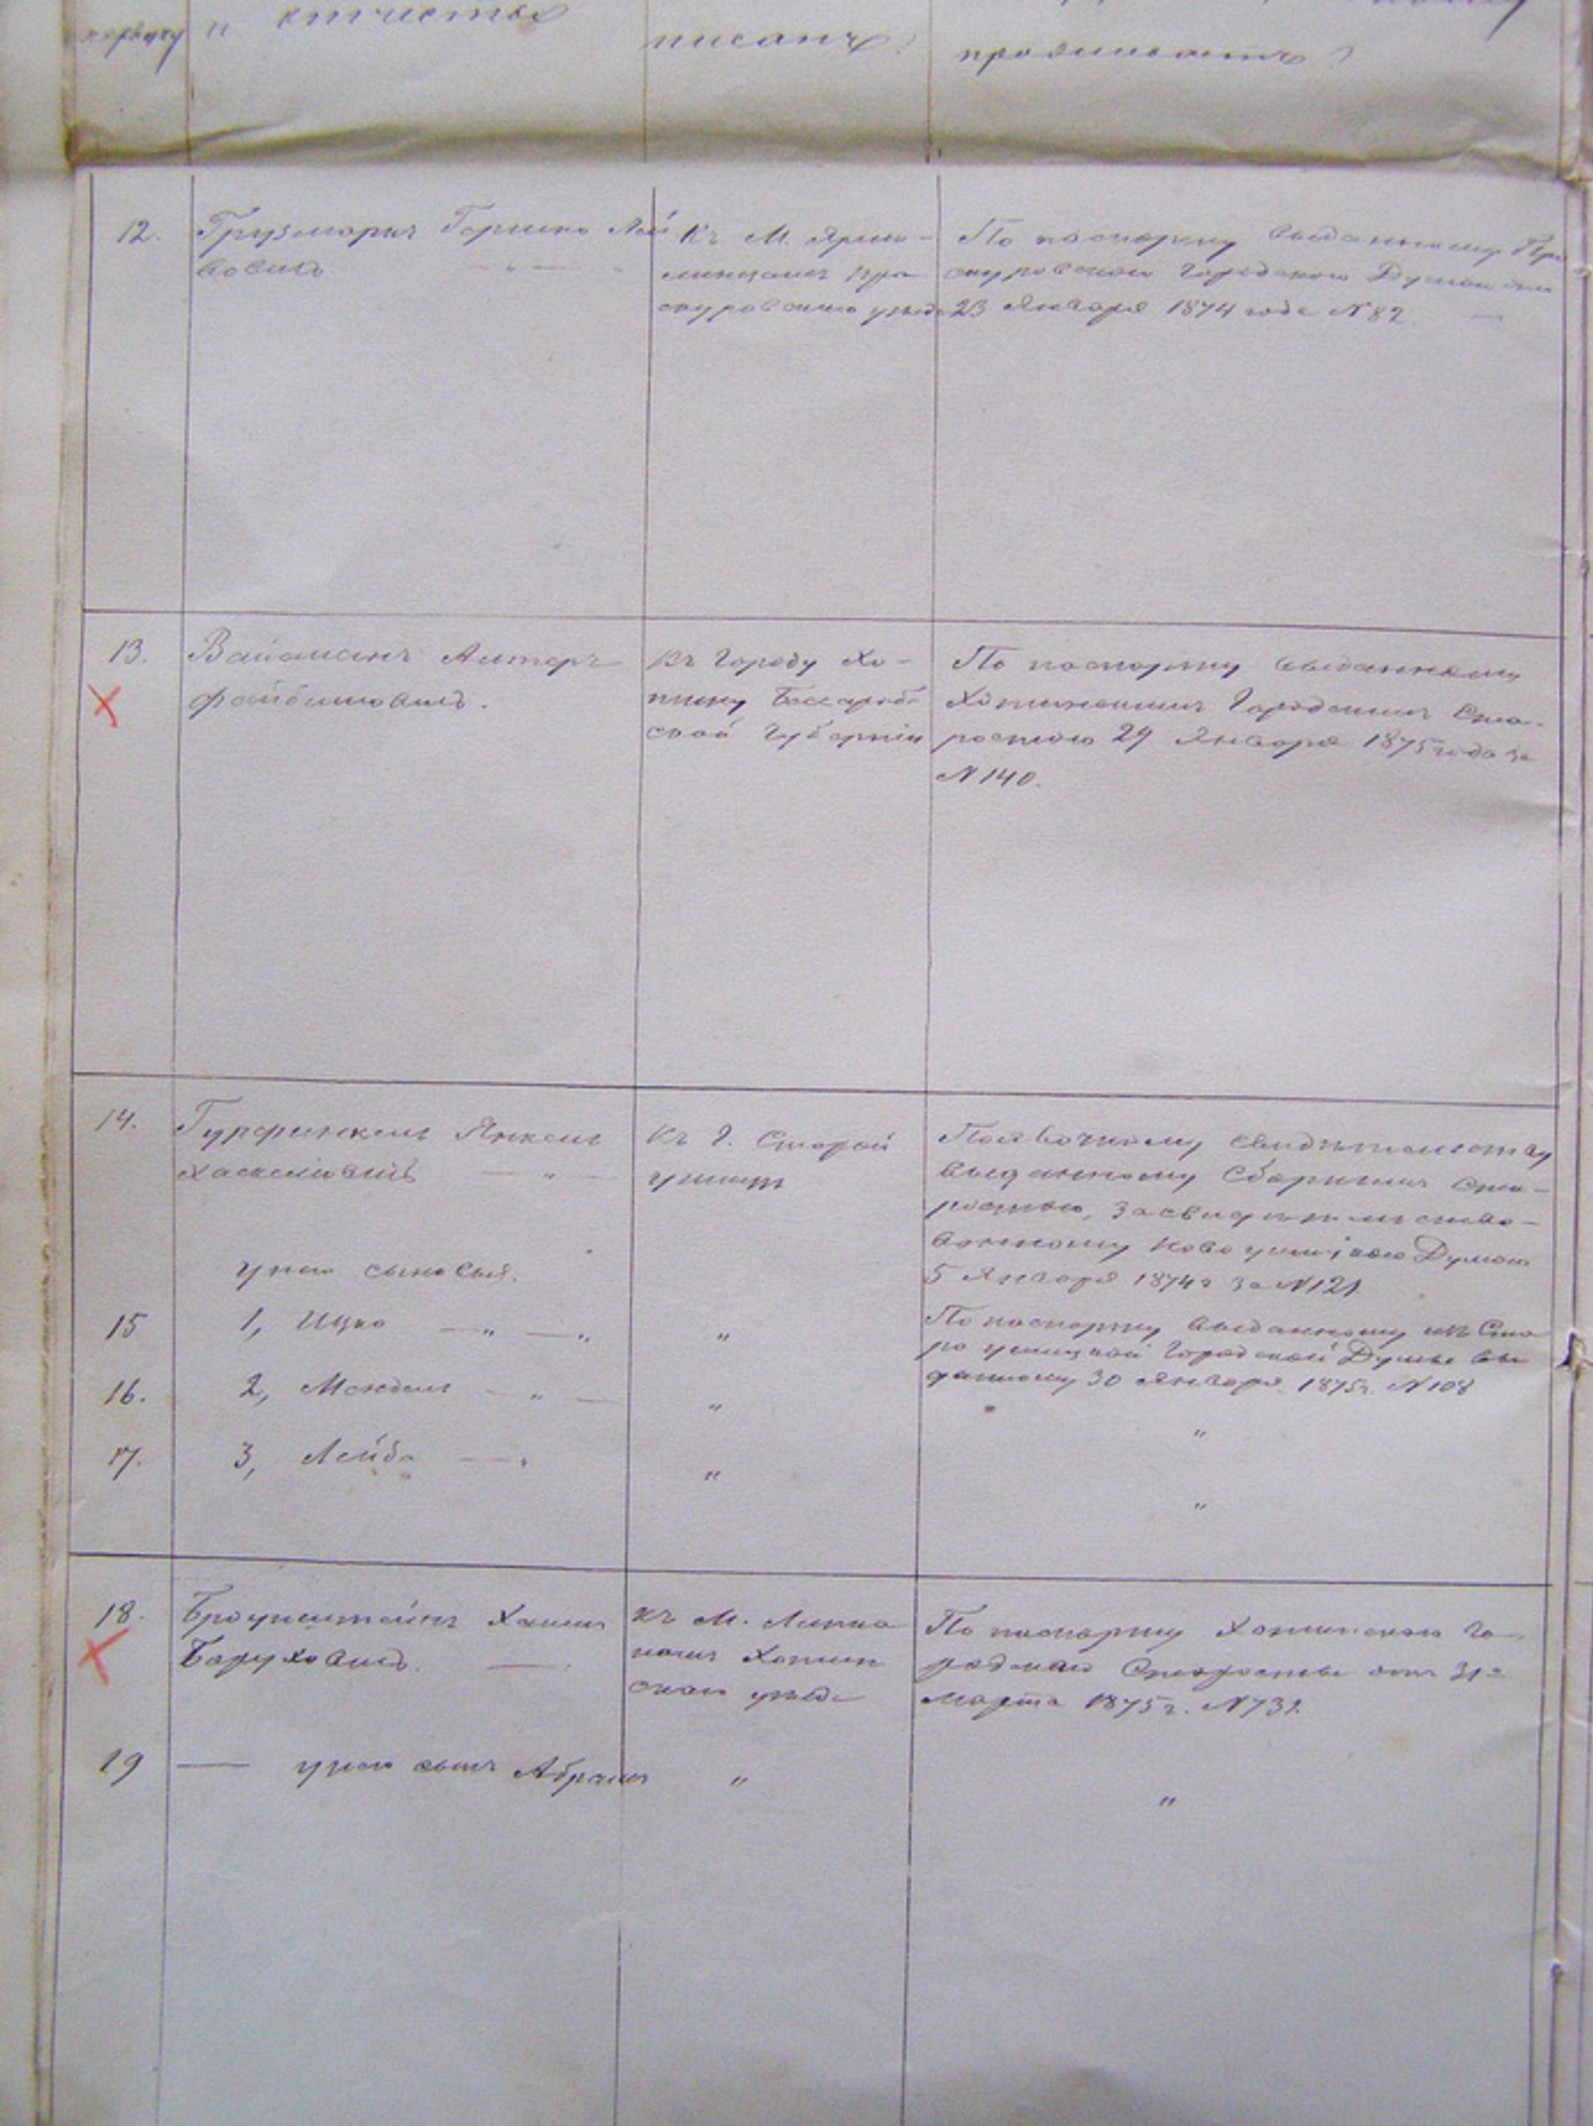 порядку и отчества
писанъ?
проживаетъ?
12. Грузмаръ Гершко Лей
бовичъ
Къ М. Ярмо-
линцамъ Про
скуровского уѣзда
По паспорту выданному Про
скуровской Городскою Думою
23 Января 1874 года N 82
13. Вайсманъ Алтеръ
Файбишовичъ.
Къ Городу Хо-
тину Бессараб-
ской Губерніи
По паспорту выданному
Хотинскимъ Городскимъ Ста-
ростою 29 Января 1875 года за
N 140.
14. Гурфинкель Янкель
Хаскелевичъ — " —
Къ г. Старой
ушицѣ
По явочному свидѣтельству
выданному Сборнымъ Ста-
ростою, засвидѣтельство-
ванному Ново ушицкою Думою
5 Января 1874 г за N 121.
у него сыновья.
15 1, Ицко — " — "
"
По паспорту выданному изъ Ста
ро ушицкой Городской Думы вы
данному 30 Января 1875 г. N 108
16. 2, Мендель — " —
"
"
17. 3, Лейба — "
"
"
18. Броунштейнъ Хаимъ
Баруховичъ. —
Къ М. Липка
намъ Хотин
скаго уѣзда
По паспорту Хотинскаго Го-
родскаго Старосты отъ 31го
Марта 1875 г. N 731.
19 — у него сынъ Абрамъ
"
"